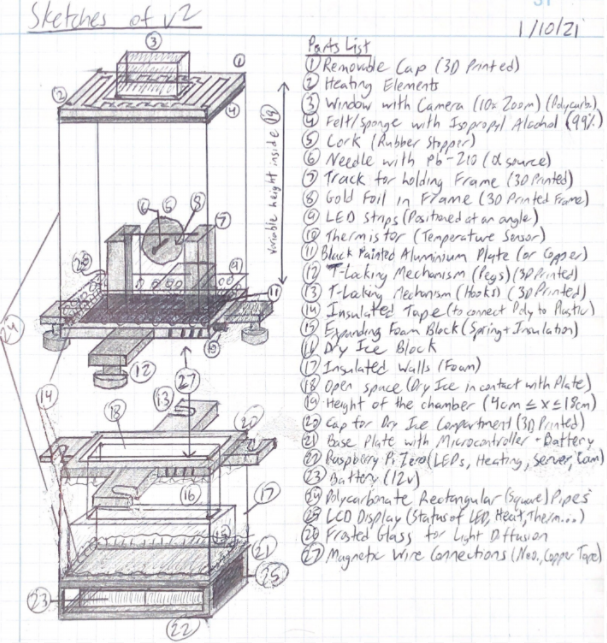 31
Sketches of v2
1/10/21
Parts List
① Removable Cap (3D Printed)
② Heating Elements
③ Window with Camera (10x Zoom) (Polycarb)
④ Felt/sponge with Isopropyl Alcohol (99%)
⑤ Cork (Rubber Stopper)
⑥ Needle with Pb-210 (α source)
⑦ Track for holding Frame (3D Printed)
⑧ Gold Foil in Frame (3D Printed Frame)
⑨ LED Strips (Positioned at an angle)
⑩ Thermistor (Temperature Sensor)
⑪ Black Painted Aluminium Plate (or Copper)
⑫ T-Locking Mechanism (Pegs) (3D Printed)
⑬ T-Locking Mechanism (Hooks) (3D Printed)
⑭ Insulated Tape (to connect Poly to Plastic)
⑮ Expanding Foam Block (Spring + Insulation)
⑯ Dry Ice Block
⑰ Insulated Walls (Foam)
⑱ Open space (Dry Ice in contact with Plate)
⑲ Height of the chamber (4cm ≤ x ≤ 18cm)
⑳ Cap for Dry Ice Compartment (3D Printed)
㉑ Base Plate with Microcontroller + Battery
㉒ Raspberry Pi Zero (LEDs, Heating, Server, Cam)
㉓ Battery (12v)
㉔ Polycarbonate Rectangular (Square) Pipes
㉕ LCD Display (Status of LED, Heat, Therm...)
㉖ Frosted Glass for Light Diffusion
㉗ Magnetic Wire Connections (Neo., Copper Tape)
③
①
②
④
variable height inside ⑲
⑥ ⑤
⑧ ⑦
㉖
⑨
⑪
⑩
㉔
⑫
⑭
㉗
⑬
⑱
⑳
⑯
⑰
㉑
㉕
㉓
㉒